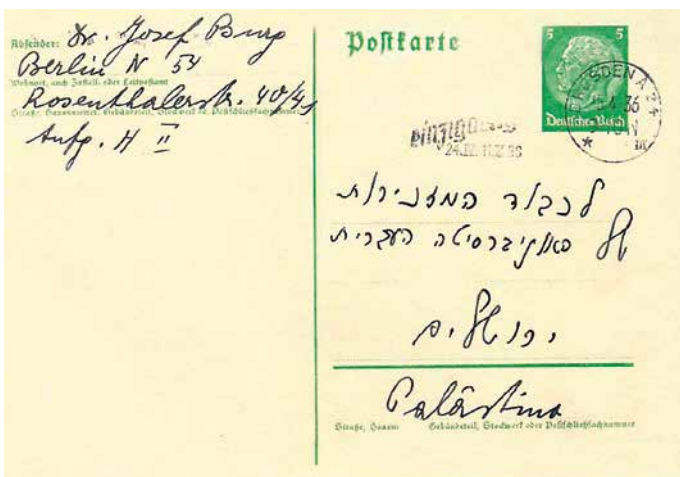 Absender: Dr. Josef Burg
Berlin N 54
Wohnort, auch Zustell- oder Leitpostamt
Rosenthalerstr. 40/41
Straße, Hausnummer, Gebäudeteil, Stockwerk od. Postschließfachnummer
Aufg. H II
Postkarte
5 5
Deutsches Reich
DRESDEN A 24
4.36
לכבוד המזכירות
של האוניברסיטה העברית
ירושלים
Palästina
Straße, Hausnummer, Gebäudeteil, Stockwerk oder Postschließfachnummer